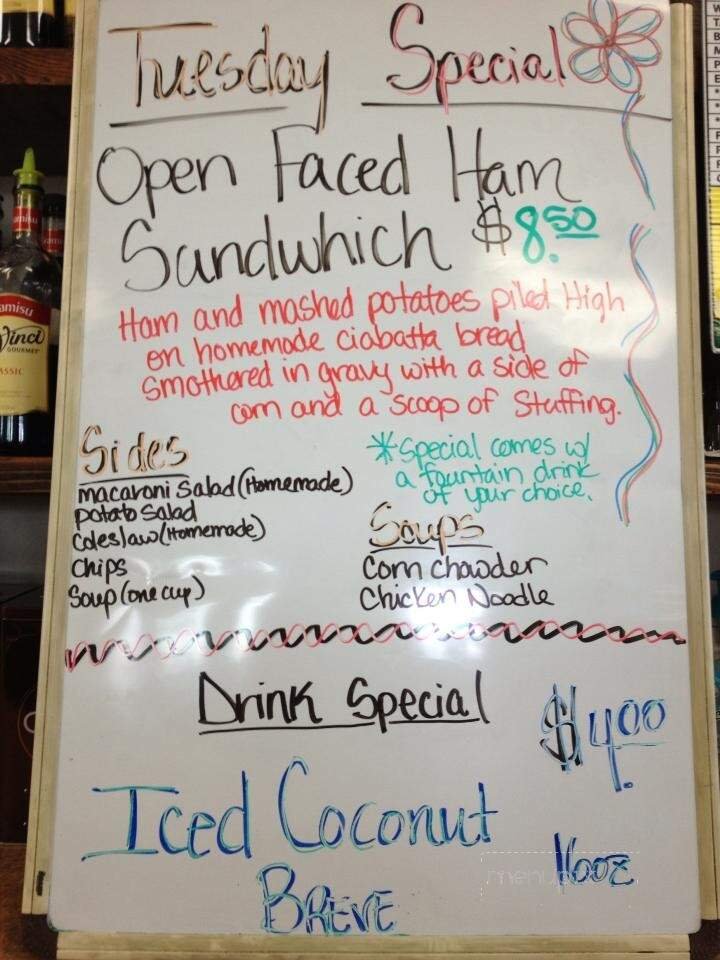 Tuesday Special
Open Faced Ham
Sandwhich $8.50
Ham and mashed potatoes piled High
on homemade ciabatta bread
smothered in gravy with a side of
corn and a scoop of Stuffing.
Sides
macaroni Salad (Homemade)
potato Salad
Coleslaw (Homemade)
Chips
Soup (one cup)
*Special comes w/
a fountain drink
of your choice.
Soups
Corn Chowder
Chicken Noodle
Drink Special
$4.00
Iced Coconut
Breve
16oz
amisu
Vinci
GOURMET